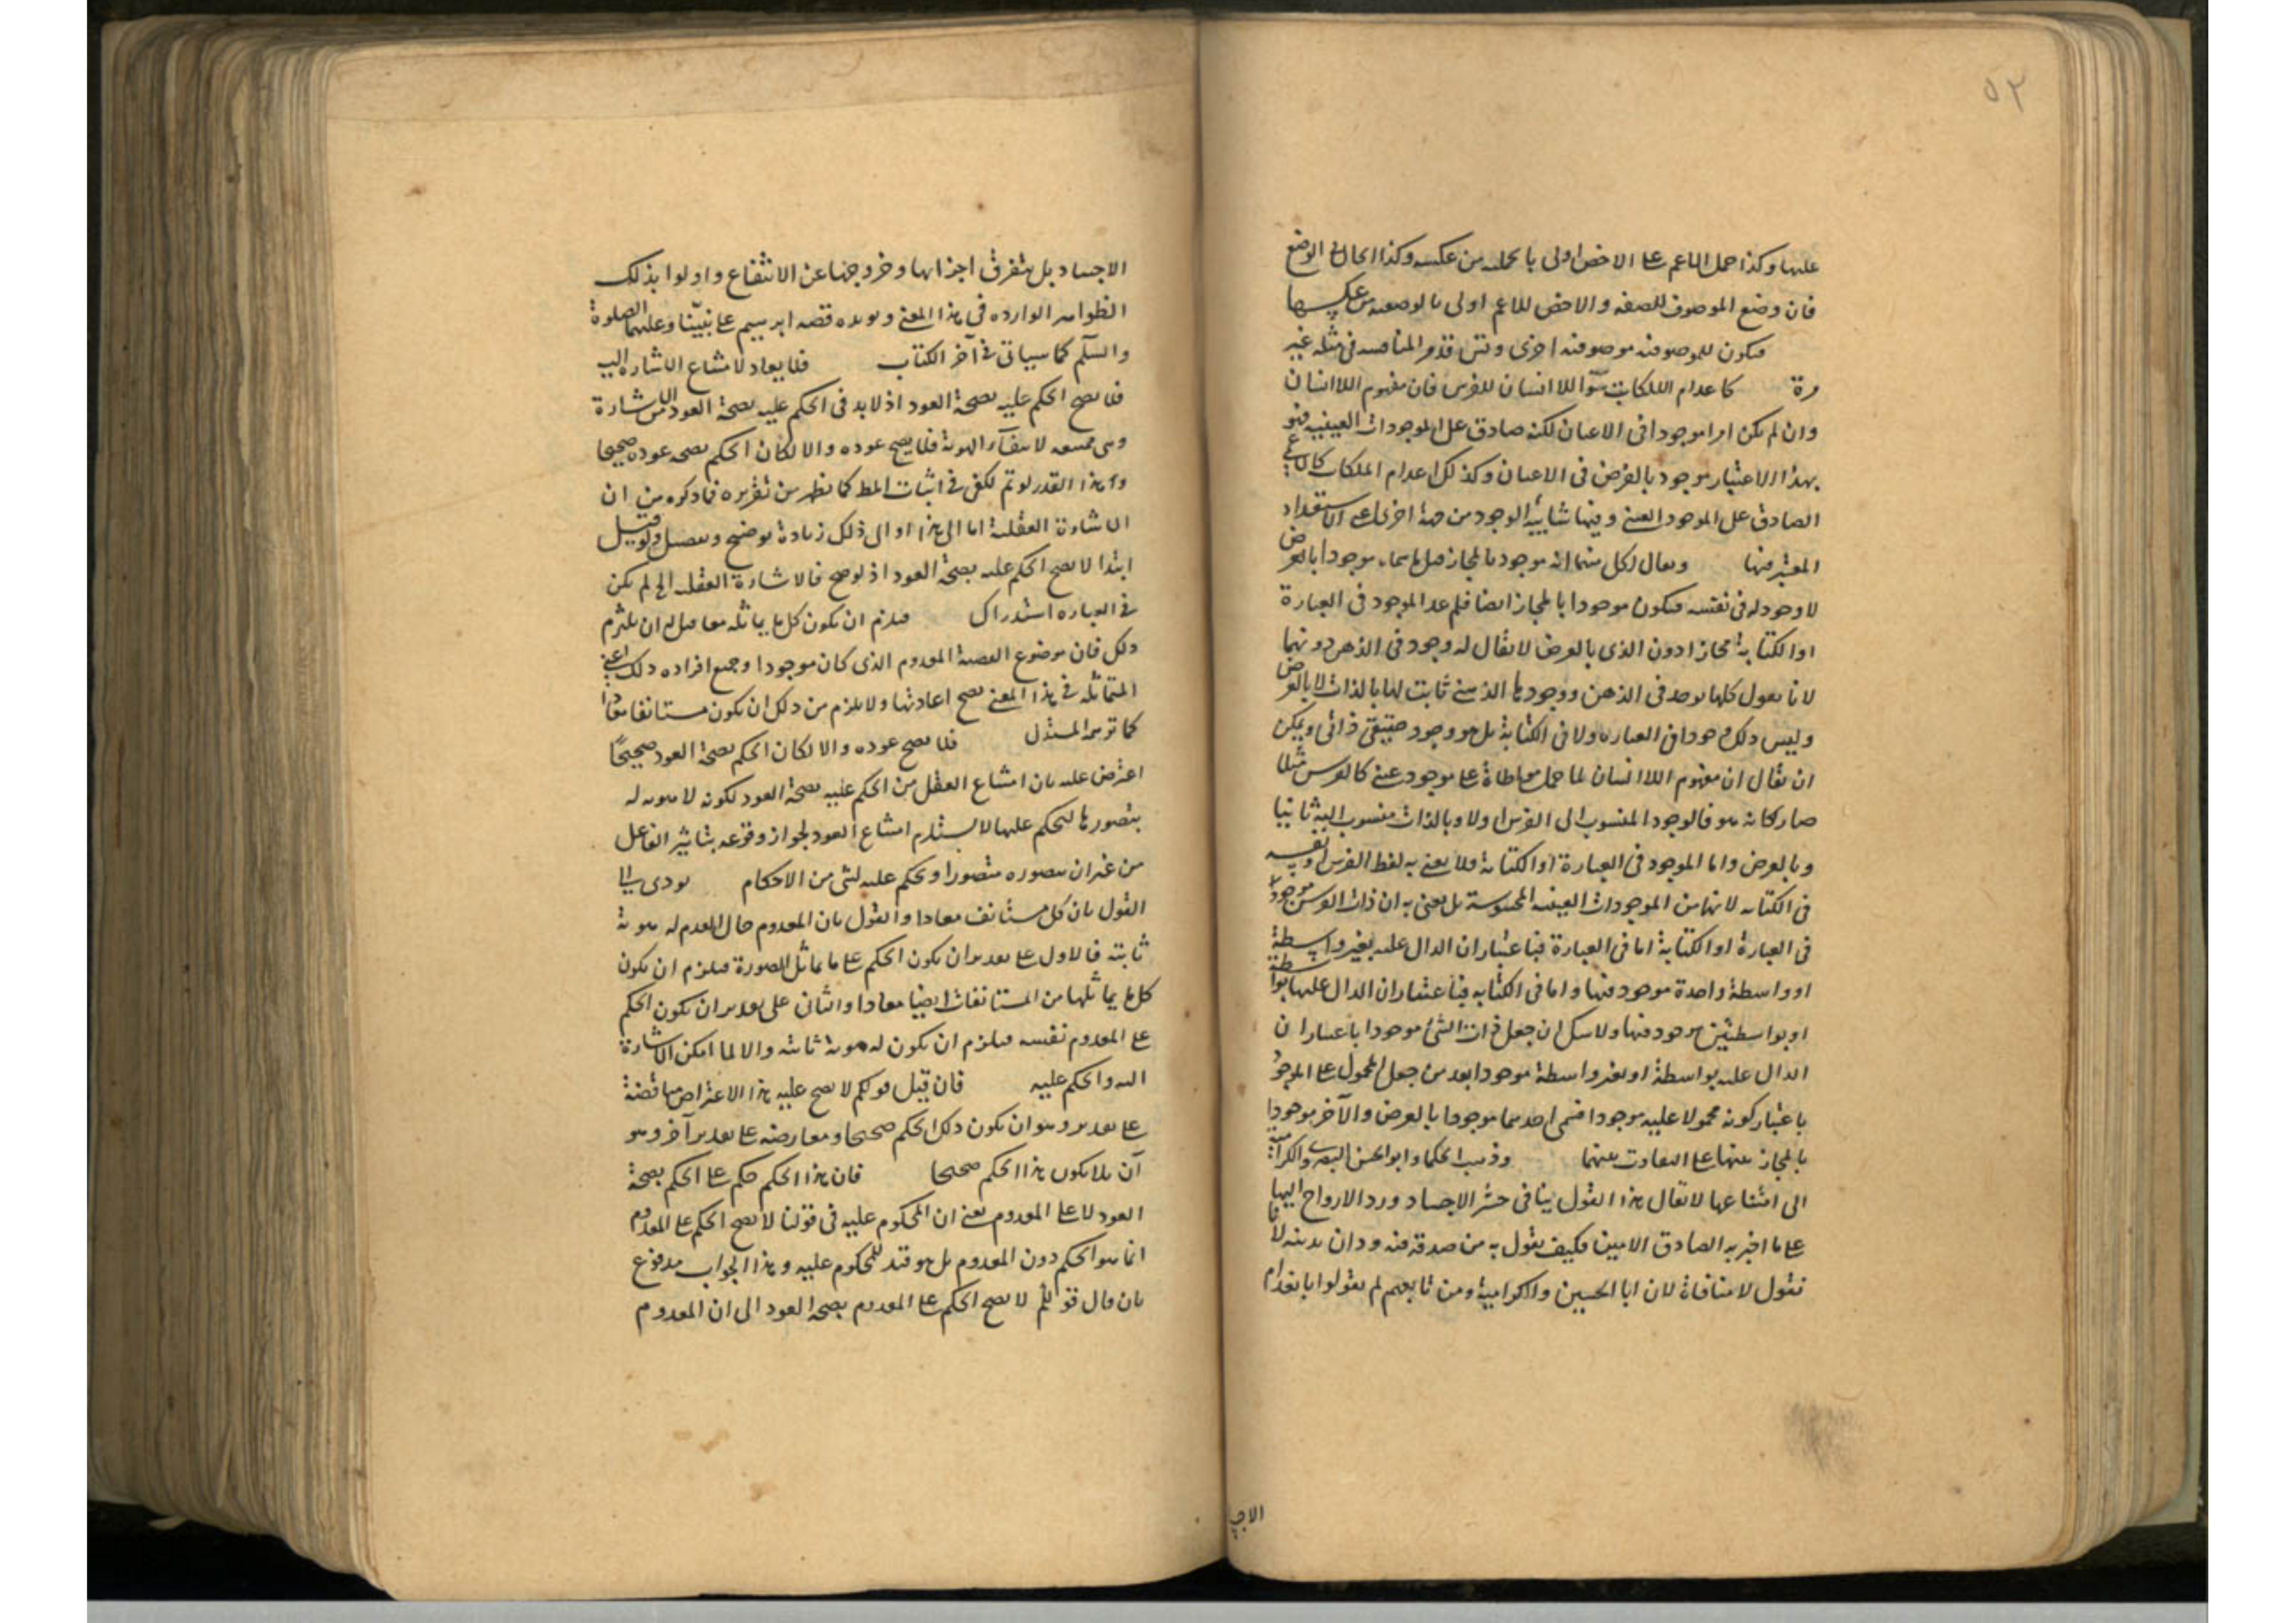 ٥٣
عليها وكذا حمل الاعم على الاخص اولى بالحمليه من عكسه وكذا الحال في الوضع
فان وضع الموصوف للصفه والاخص للاعم اولى بالوضعيه من عكسها
فيكون للموضوفيه موضوفيه اخرى وقس المناقشه في مثله غير
مرة كاعدام الملكات سيما اللا انسان للفرس فان مفهوم اللاانسان
وان لم يكن امرا موجودا في الاعيان لكنه صادق على الموجودات العينيه فهو
بهذا الاعتبار موجود بالعرض في الاعيان وكذلك اعدام الملكات كالاعمى
الصادق على الموجود العيني وفيها شايبة الوجود من جهة اخرى هي الاستعداد
المعتبر فيها ويقال لكل منهما انه موجود بالمجاز موجودا بالعرض
لا وجود له في نفسه فيكون موجودا بالمجاز ايضا فلم عد الموجود في العبارة
او الكتابة مجازا دون الذي بالعرض لا يقال له وجود في الذهن دونهما
لانا نقول كلها يوجد في الذهن ووجودها الذهني ثابت لها بالذات لا بالعرض
وليس ذلك موجودا في العباره ولا في الكتابة بل هو وجود حقيقي ذاتي ويمكن
ان يقال ان مفهوم اللاانسان لما حمل مواطاة على موجود عيني كالفرس مثلا
صار كانه هو فالوجود المنسوب الى الفرس اولا وبالذات منسوب اليه ثانيا
وبالعرض واما الموجود في العبارة او الكتابة فلا يعنى به لفظ الفرس او نقشه
في الكتابه لانهما من الموجودات العينيه المحسوسة بل يعنى به ان ذات الفرس موجودة
في العبارة او الكتابة اما في العبارة فباعتبار ان الدال عليه بغير واسطة
او واسطة واحدة موجود فيها واما في الكتابه فباعتبار ان الدال عليها بواسطة
او بواسطتين موجود فيها ولا شك ان جعل ذات الشئ موجودا باعتبار ان
الدال عليه بواسطة او بغير واسطة موجودا بعد من جعل المحمول على الموجود
باعتبار كونه محمولا عليه موجودا فسمى احدهما موجودا بالعرض والآخر موجودا
بالمجاز تنبيها على التفاوت بينهما وذهب الحكما وابو الحسين البصري والكرامية
الى امتناعها لا يقال هذا القول ينافي حشر الاجساد ورد الارواح اليها
على ما اخبر به الصادق الامين فكيف يقول به من صدقه فيه ودان بدينه لانا
نقول لا منافاة لان ابا الحسين والكرامية ومن تابعهم لم يقولوا بانعدام
الاجسا
الاجساد بل بتفرق اجزائها وخروجها عن الانتفاع واولوا بذلك
الظواهر الوارده في هذا المعنى ويويده قصه ابرهيم على نبيّنا وعليهما الصلوة
والسلم كما سياتي في آخر الكتاب فلا يعاد لامتناع الاشارة اليه
فلا يصح الحكم عليه بصحة العود اذ لابد في الحكم عليه بصحة العود من الاشارة
وهي ممتنعه لانتفاء الهوية فلا يصح عوده والا لكان الحكم بصحه عوده صحيحا
وهذا القدر لو تم لكفى في اثبات المط كما يظهر من تقريره فما ذكره من ان
الاشارة العقلية اما الى هذا او الى ذلك زيادة توضيح وتفصيل ولو قيل
ابتدا لا يصح الحكم عليه بصحة العود اذ لو صح فالاشارة العقليه الخ لم يكن
في العباره استدراك فيلزم ان يكون كل ما يماثله معا قيل له ان يلتزم
ذلك فان موضوع القضية المعدوم الذي كان موجودا وجميع افراده ذلك اعني
المتماثله في هذا المعنى يصح اعادتها ولا يلزم من ذلك ان يكون مستانفا معادا
كما توهمه المستدل فلا يصح عوده والا لكان الحكم بصحة العود صحيحًا
اعترض عليه بان امتناع العقل من الحكم عليه بصحة العود لكونه لا هويه له
يتصورها ليحكم عليها لا يستلزم امتناع العود لجواز وقوعه بتاثير الفاعل
من غير ان يتصوره متصورا ويحكم عليه بشئ من الاحكام يودي الى
القول بان كل مستانف معادا والقول بان المعدوم حال العدم له هوية
ثابته فالاول على تقدير ان يكون الحكم على ما يماثل الصورة فيلزم ان يكون
كل ما يماثلها من المستانفات ايضا معادا والثاني على تقدير ان يكون الحكم
على المعدوم نفسه فيلزم ان يكون له هوية ثابته والا لما امكن الاشارة
اليه والحكم عليه فان قيل قولكم لا يصح عليه هذا الاعتراض مناقضة
على تقدير وهو ان يكون ذلك الحكم صحيحا ومعارضه على تقدير آخر وهو
ان لا يكون هذا الحكم صحيحا فان هذا الحكم حكم على الحكم بصحة
العود لا على المعدوم يعني ان المحكوم عليه في قولنا لا يصح الحكم على المعدوم
انما هو الحكم دون المعدوم بل هو قيد للمحكوم عليه وهذا الجواب مدفوع
بان مال قولكم لا يصح الحكم على المعدوم بصحه العود الى ان المعدوم